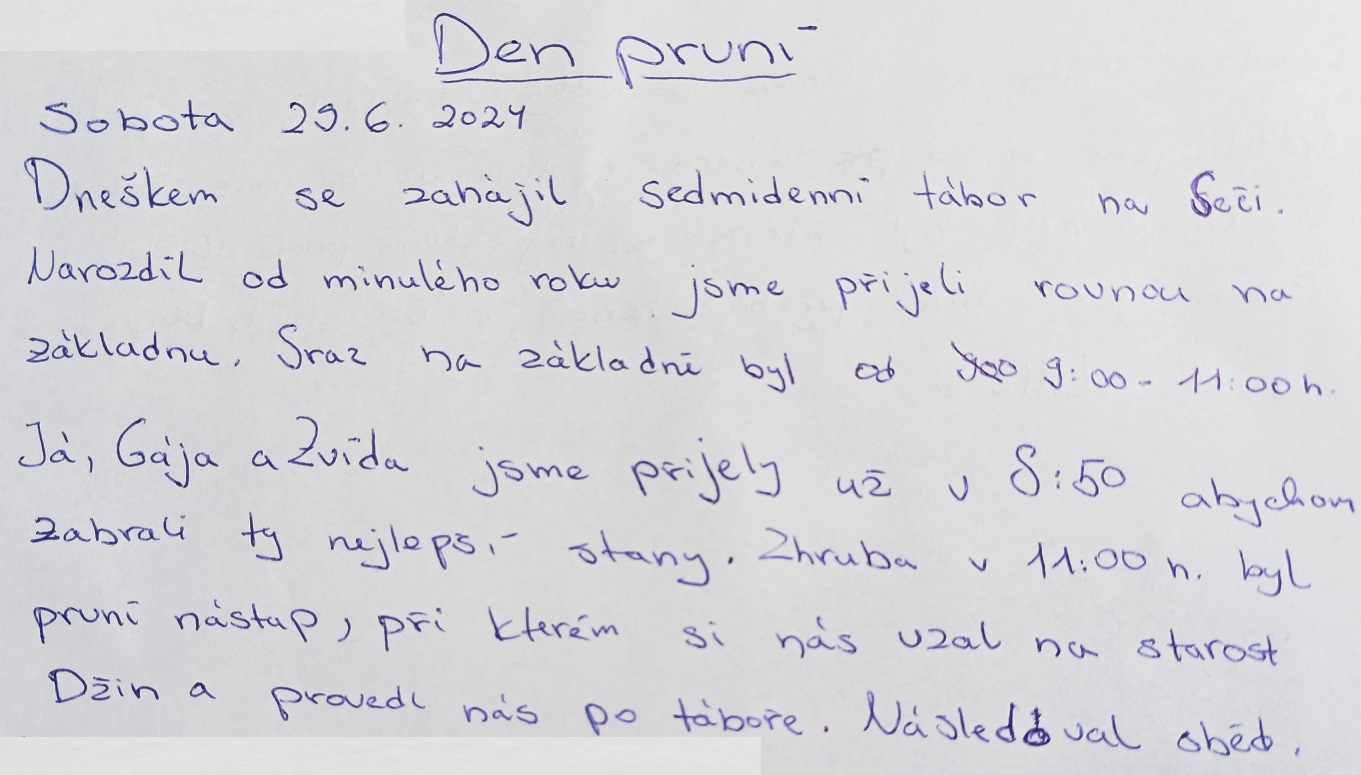 Den první
Sobota 29.6. 2024
Dneškem se zahájil sedmidenní tábor na Seči.
Narozdíl od minulého roku jsme přijeli rovnou na
základnu. Sraz na základně byl od 9:00 - 11:00 h.
Já, Gája a Zvída jsme přijely už v 8:50 abychom
zabrali ty nejlepší stany. Zhruba v 11:00 h. byl
první nástup, při kterém si nás vzal na starost
Džin a provedl nás po táboře. Následoval oběd.